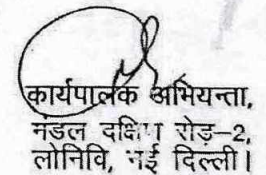 कार्यपालक अभियन्ता,
मंडल दक्षिण रोड़-2,
लोनिवि, नई दिल्ली।